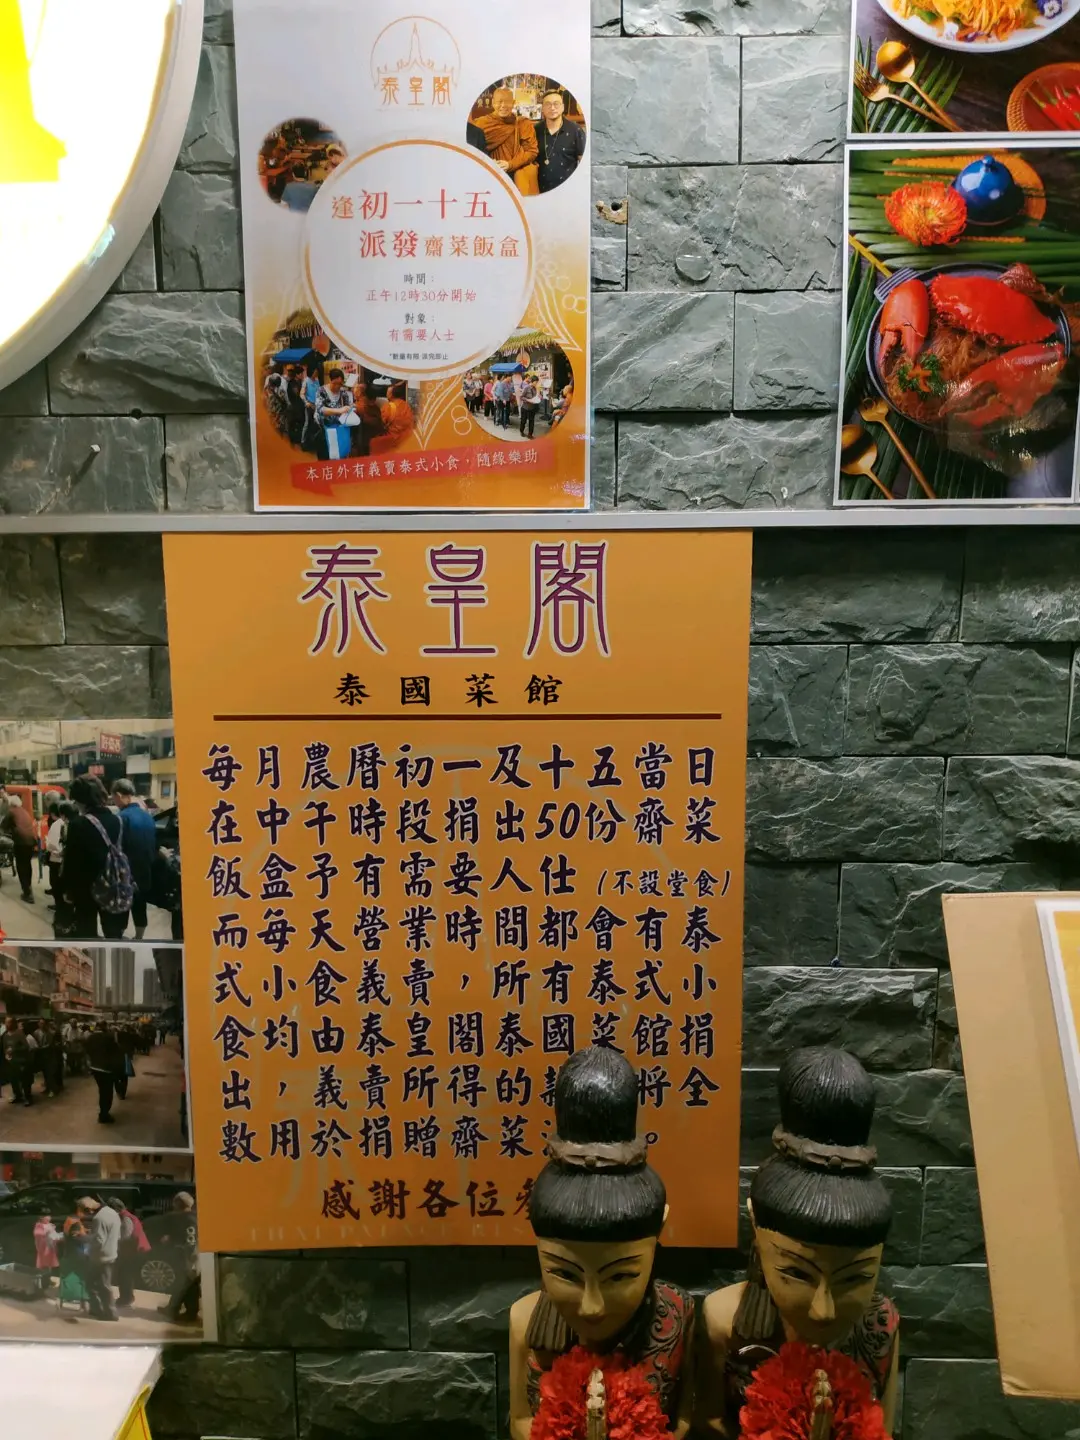 泰皇閣
逢初一十五
派發齋菜飯盒
時間：
正午12時30分開始
對象：
有需要人士
*數量有限 派完即止
本店外有義賣泰式小食，隨緣樂助
泰皇閣
泰國菜館
每月農曆初一及十五當日
在中午時段捐出50份齋菜
飯盒予有需要人仕（不設堂食）
而每天營業時間都會有泰
式小食義賣，所有泰式小
食均由泰皇閣泰國菜館捐
出，義賣所得的款將全
數用於捐贈齋菜。
感謝各位
THAI PALACE